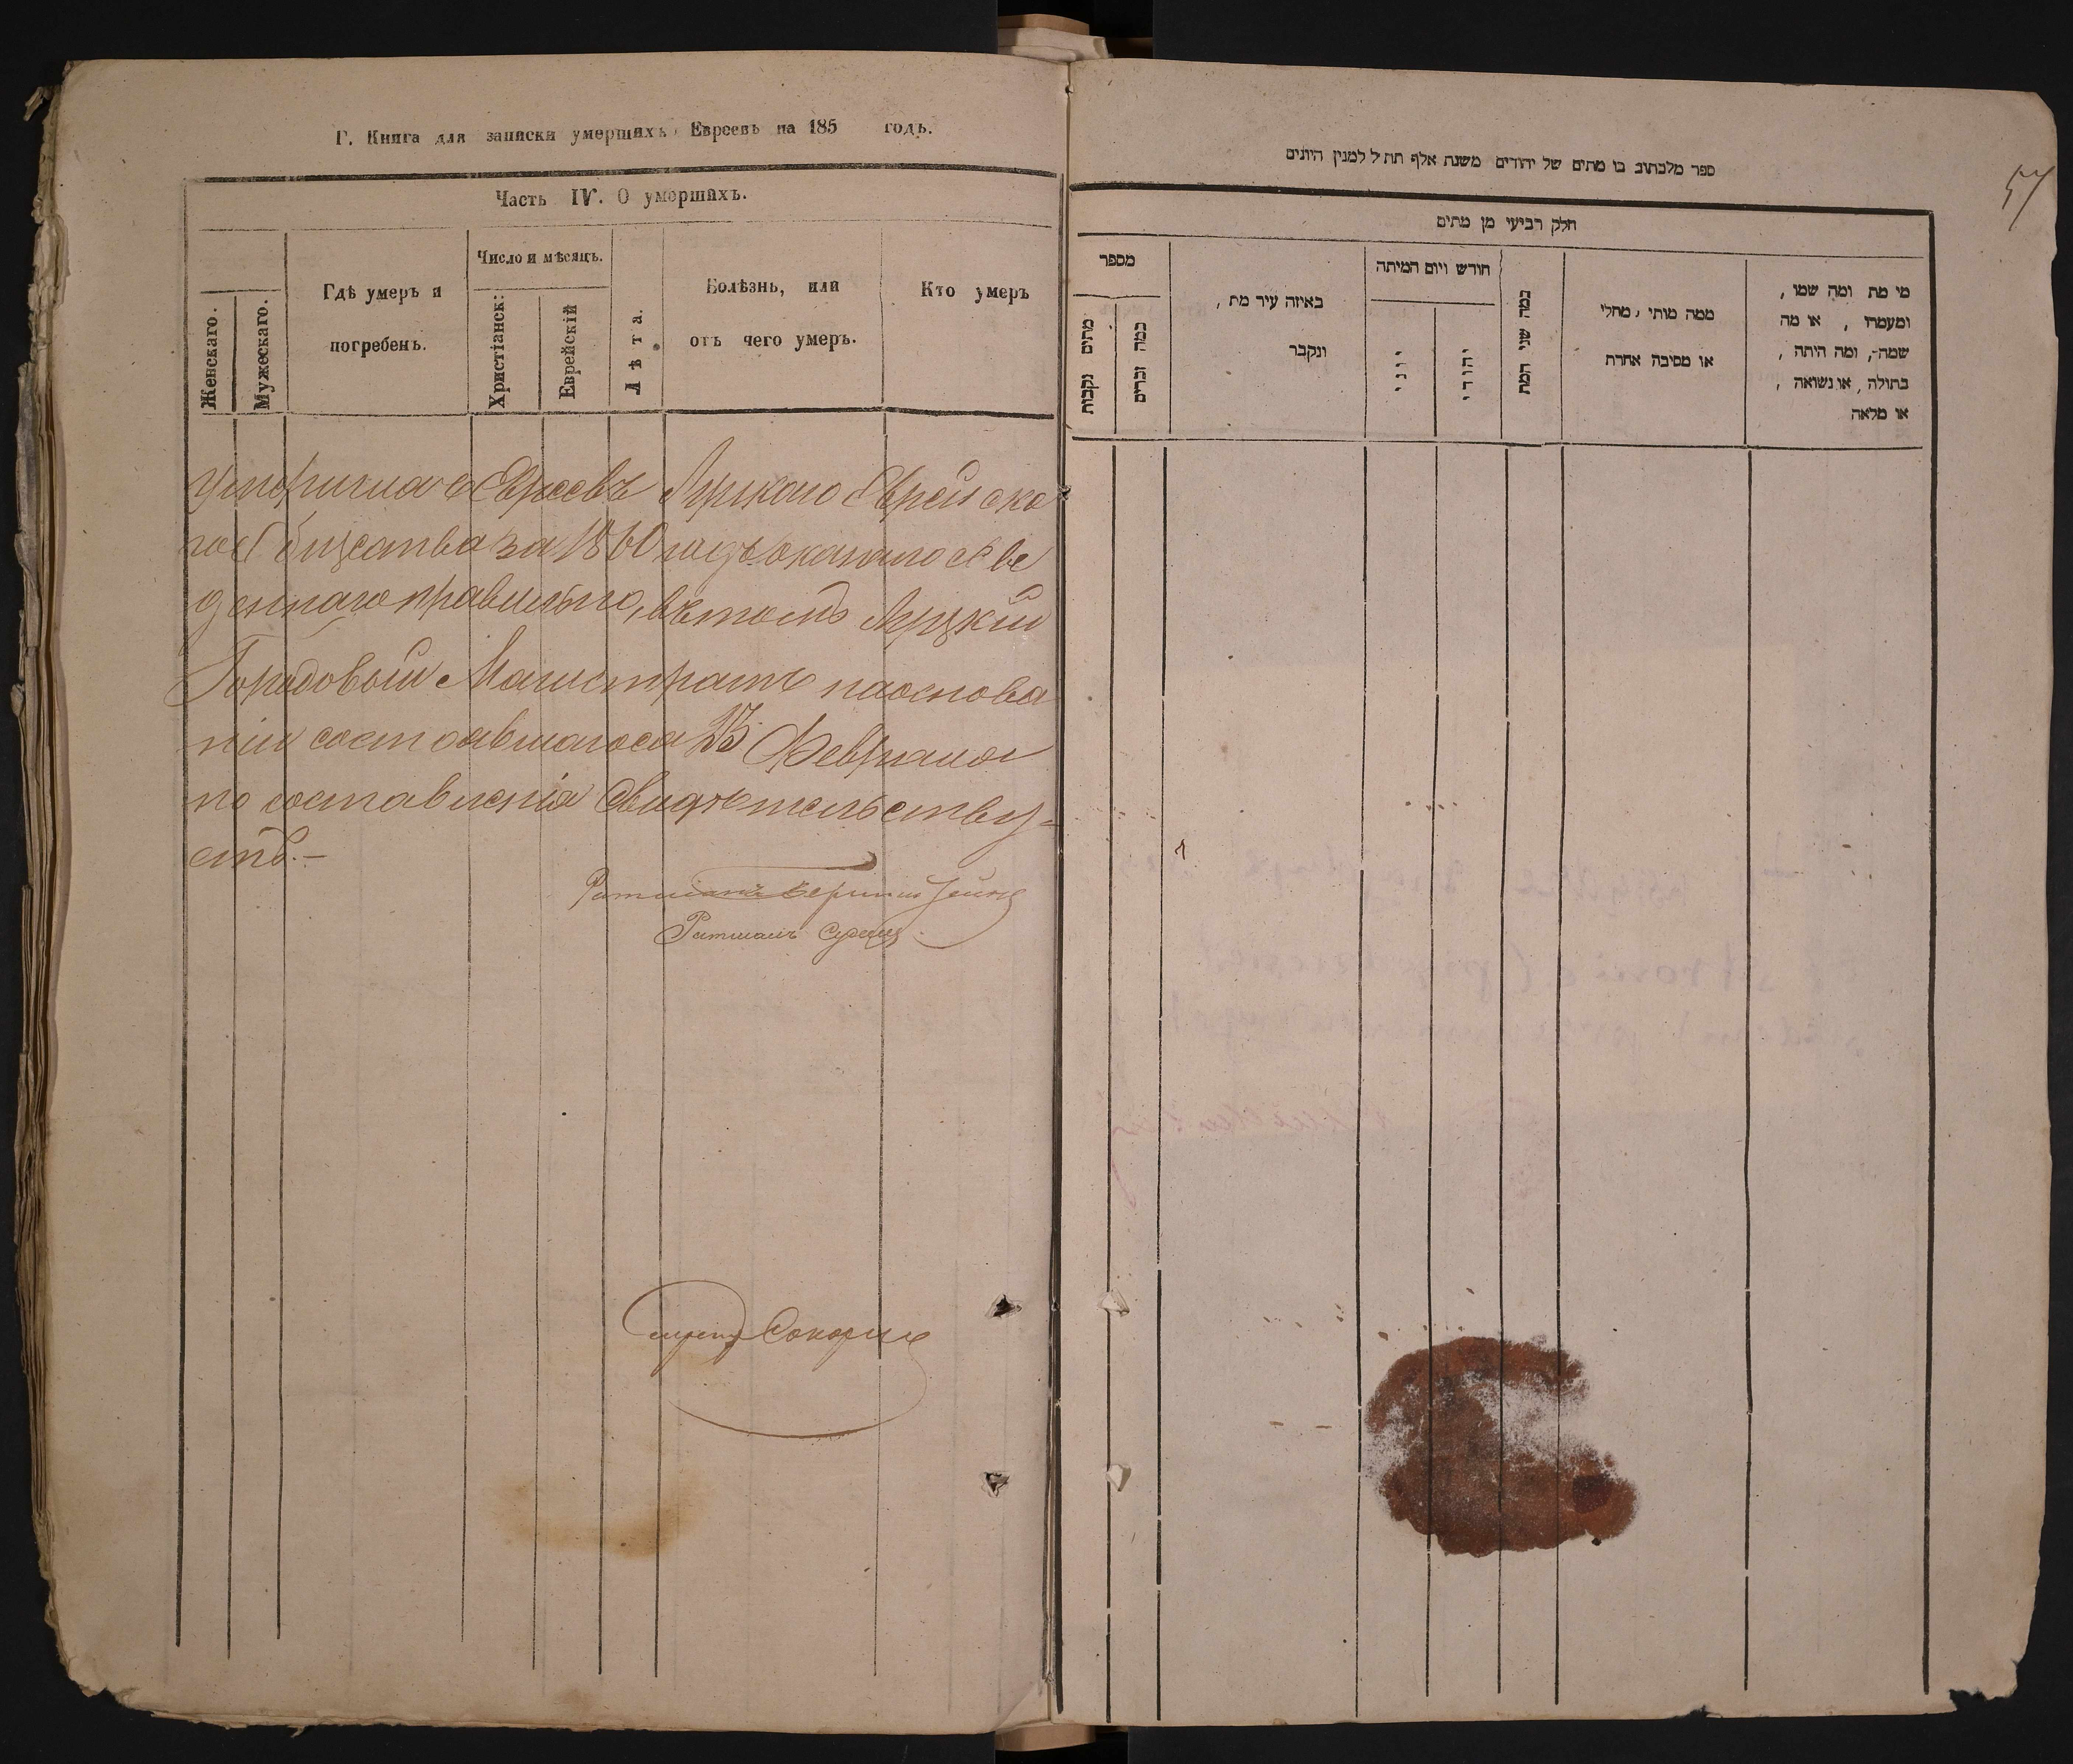 Г. Книга для записки умершихъ Евреевъ на 185 годъ.
Часть IV. О умершихъ.
Женскаго.
Мужескаго.
Гдѣ умеръ и
погребенъ.
Число и мѣсяцъ.
Христіанск:
Еврейскій
Лѣта.
Болѣзнь, или
отъ чего умеръ.
Кто умеръ
Евреевъ Луцкаго Еврейска
го Общества за 1860 годъ оказалось ве
деннаго правильно, въ томъ Луцкій
Городовый Магистратъ на основа
ніи состоявшагося 15 Февраля
по составленія свидѣтельству-
етъ.-
Ратманъ
Ратманъ
ספר מלכתוב בו מתים של יהודים משנת אלף תת״ל למנין היונים
57
חלק רביעי מן מתים
מספר
מתים נקבות
כמה זכרים
באיזה עיר מת ,
ונקבר
חודש ויום המיתה
יוני
יהודי
כמה שני המת
ממה מותי , מחלי
או מסיבה אחרת
מי מת ומה שמו ,
ומעמדו , או מה
שמה-, ומה היתה ,
בתולה , או נשואה ,
או מלאה